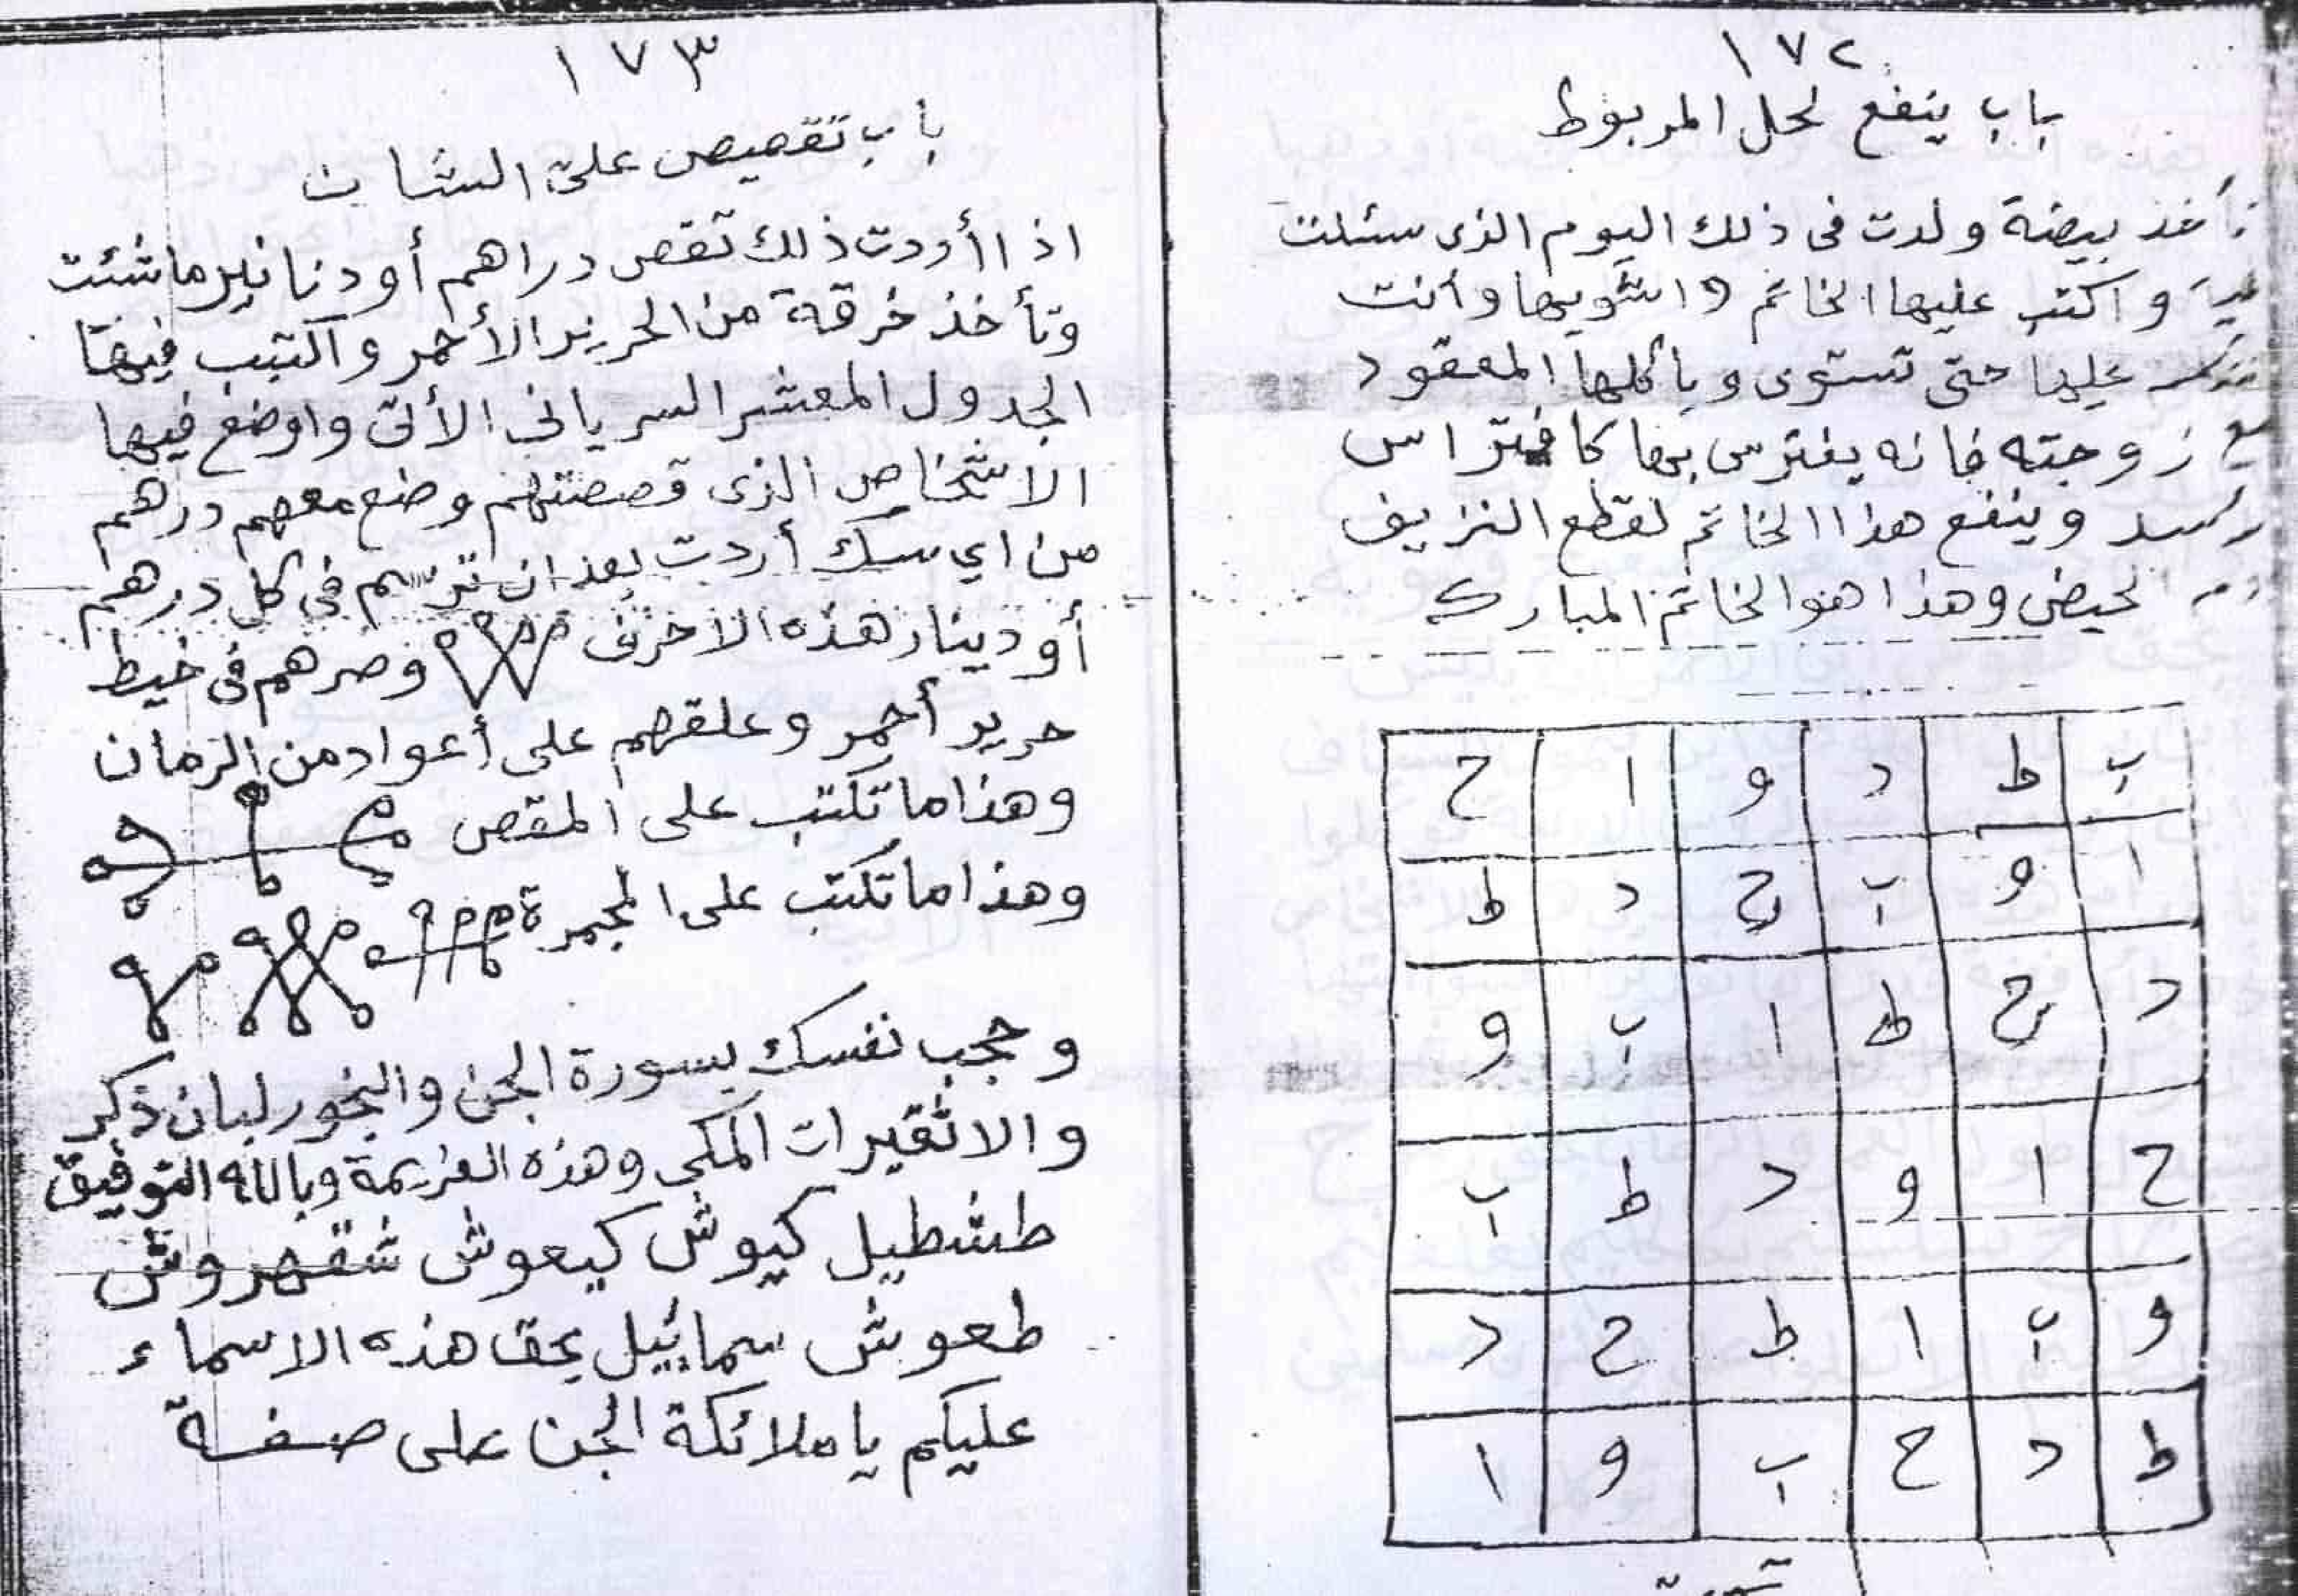 ١٧٢
باب ينفع لحل المربوط
تأخذ بيضة ولدت فى ذلك اليوم الذى سئلت
واكتب عليها الخاتم واشويها وأنت
عليها حتى تستوى وياكلها المعقود
مع زوجته فانه يفترس بها كافتراس
وينفع هذا الخاتم لقطع النزيف
الحيض وهذا هو الخاتم المبارك
ب ط د و ا ح
ا و ب ح د ط
د ح ط ا ب و
ح ا و د ط ب
و ب ا ط ح د
ط د ح ب و ا
١٧٣
باب تقصيص على الشان
اذا أردت ذلك تقص دراهم أو دنانير ما شئت
وتأخذ خرقة من الحرير الأحمر واكتب فيها
الجدول المعشر السرياني الأتى واوضع فيها
الاشخاص الذى قصصتهم وضع معهم درهم
من اي سك أردت بعد ان ترسم فى كل درهم
أو دينار هذه الاحرف وصرهم فى خيط
حرير أحمر وعلقهم على أعواد من الرمان
وهذا ما تكتب على المقص
وهذا ما تكتب على المجمرة
وحجب نفسك بسورة الجن والبخور لبان ذكر
والانقيرات المكى وهذه العزيمة وبالله التوفيق
طشطيل كيوش كيعوش شقهروش
طعوش سمائيل بحق هذه الاسماء
عليكم يا ملائكة الجن على صفة